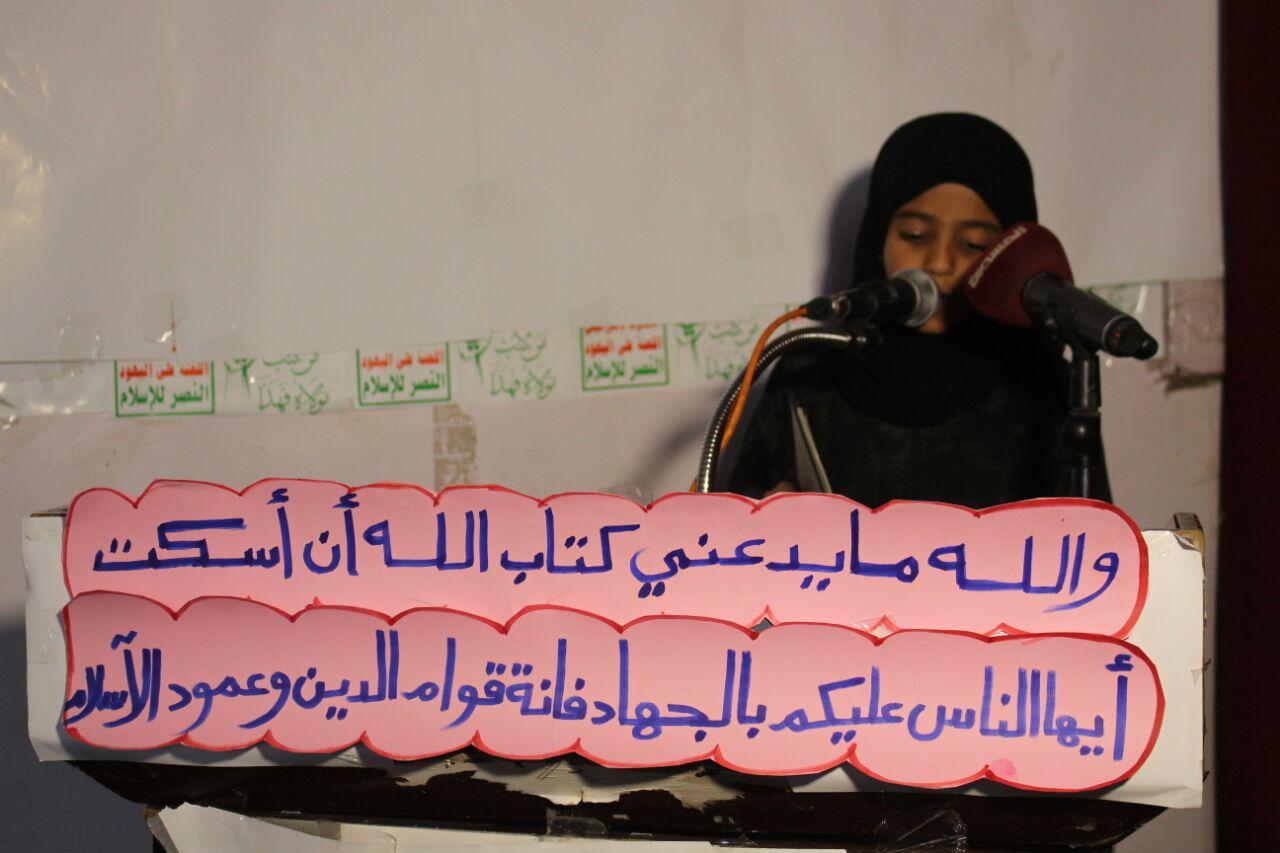 اللعنة على اليهود
النصر للإسلام
اللعنة على اليهود
النصر للإسلام
اللعنة على اليهود
النصر للإسلام
والله ما يدعني كتاب الله أن أسكت
أيها الناس عليكم بالجهاد فانة قوام الدين وعمود الآسلام